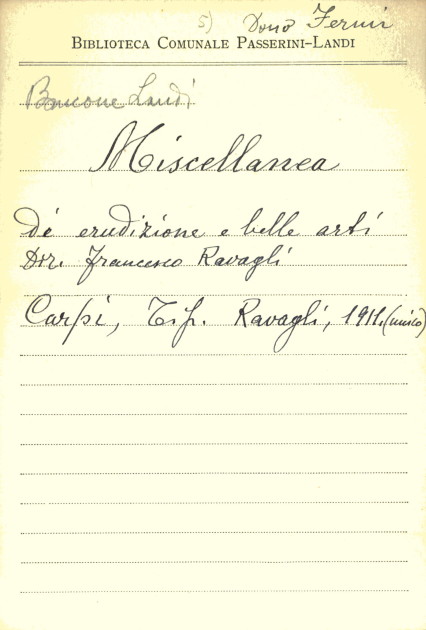 5) Dono Fermi
BIBLIOTECA COMUNALE PASSERINI-LANDI
Bancone Landi
Miscellanea
di erudizione e belle arti
Dir. Francesco Ravagli
Carpi, Tip. Ravagli, 1911. (unico)